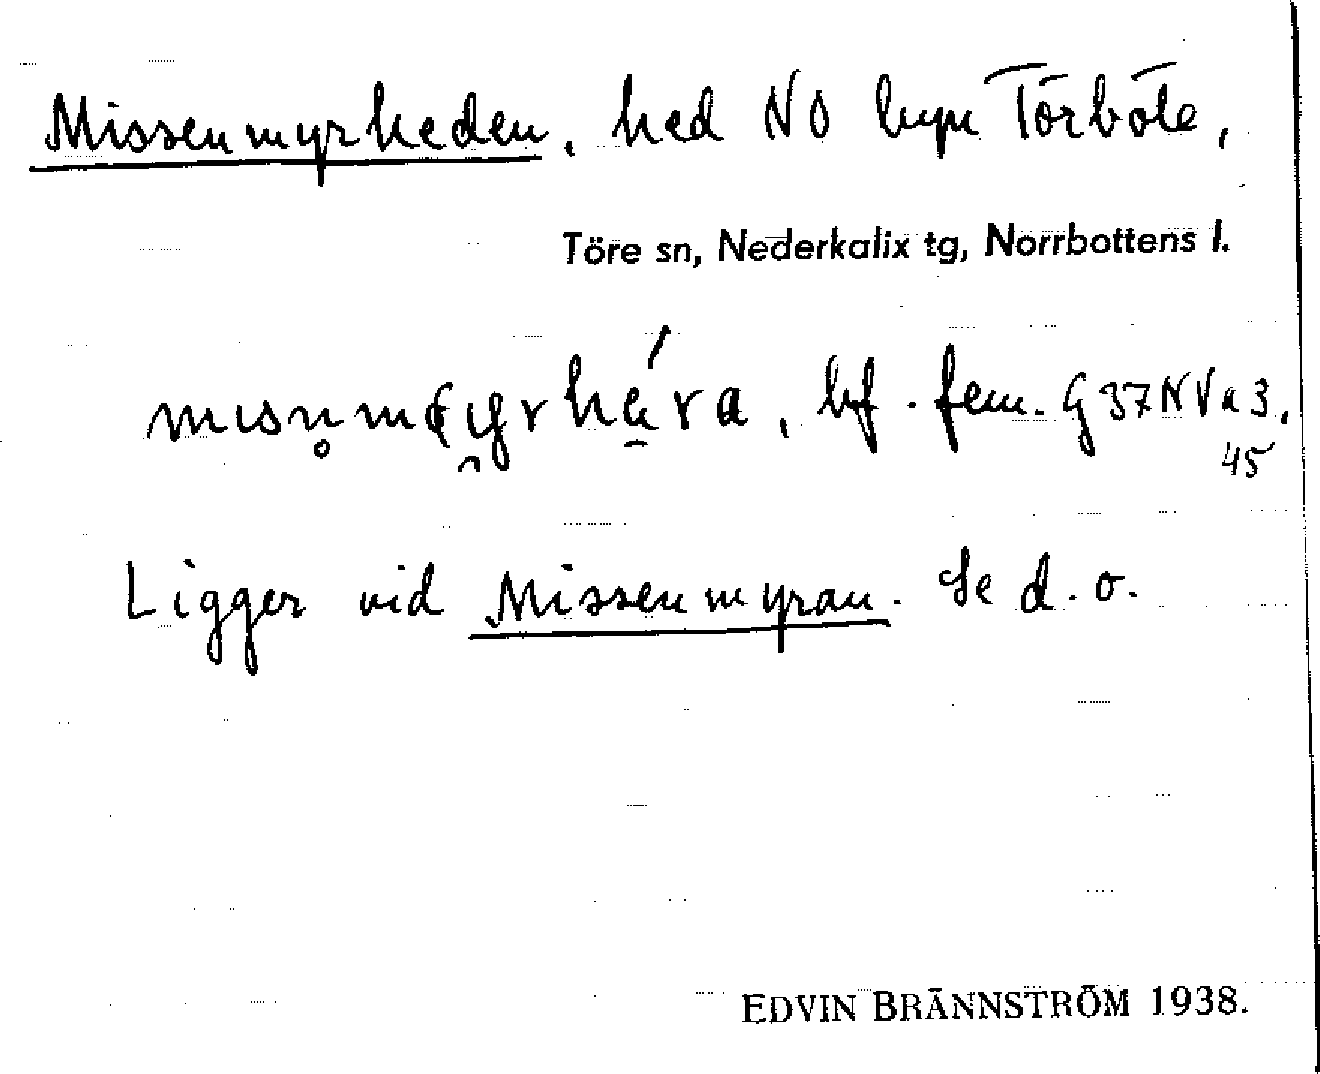 Missenmyrheden, hed NO byn Törböle,
Töre sn, Nederkalix tg, Norrbottens l.
bf. fem. G 37 NV a 3.
45
Ligger vid Missenmyran. Se d. o.
EDVIN BRÄNNSTRÖM 1938.